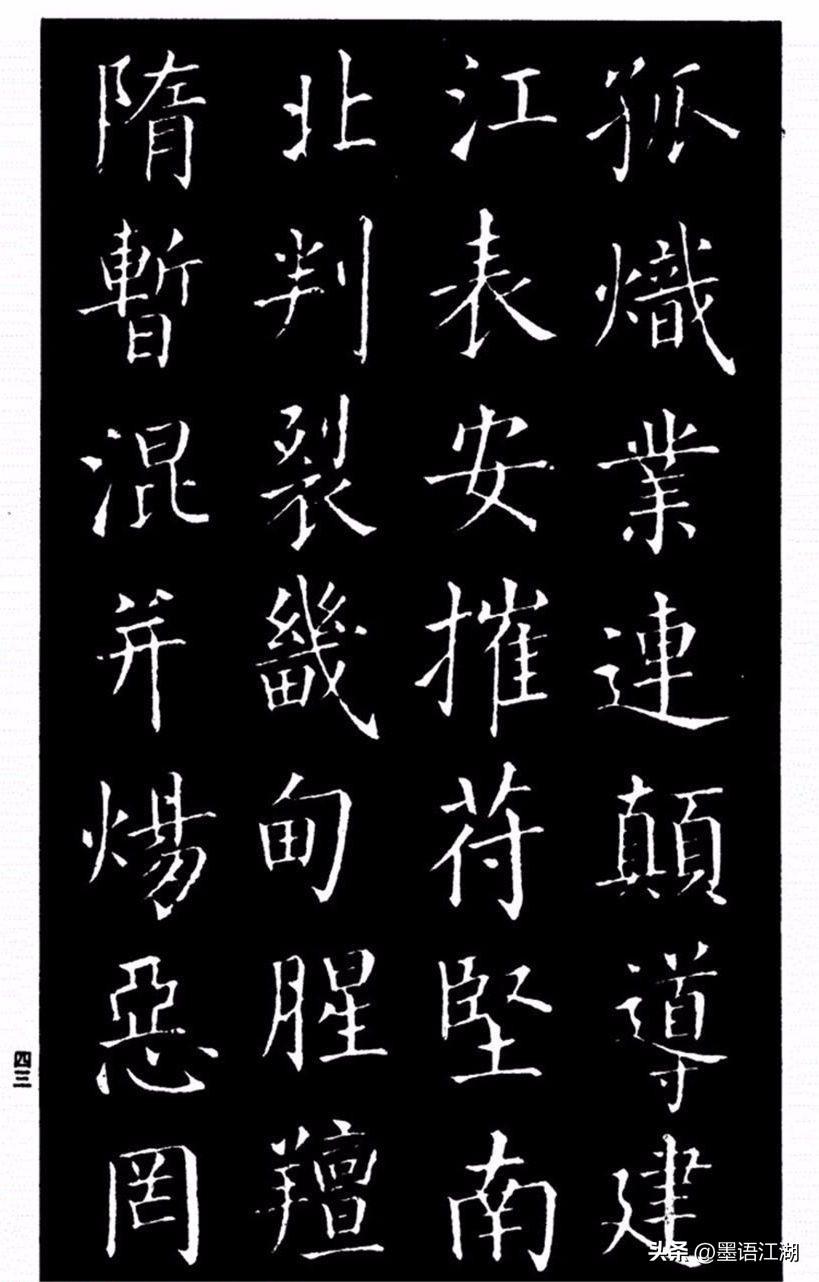 孤熾業連顛導建
江表安摧苻堅南
北判裂畿甸腥羶
隋暫混并煬惡罔
四三
头条 @墨语江湖